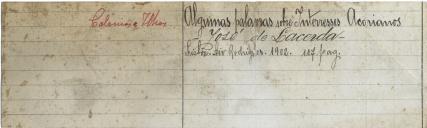 Colonias e Ilhas
Algumas palavras sobre Interesses Açorianos
José de Lacerda
Lisboa. Rodrigues. 1902. 117 pag.